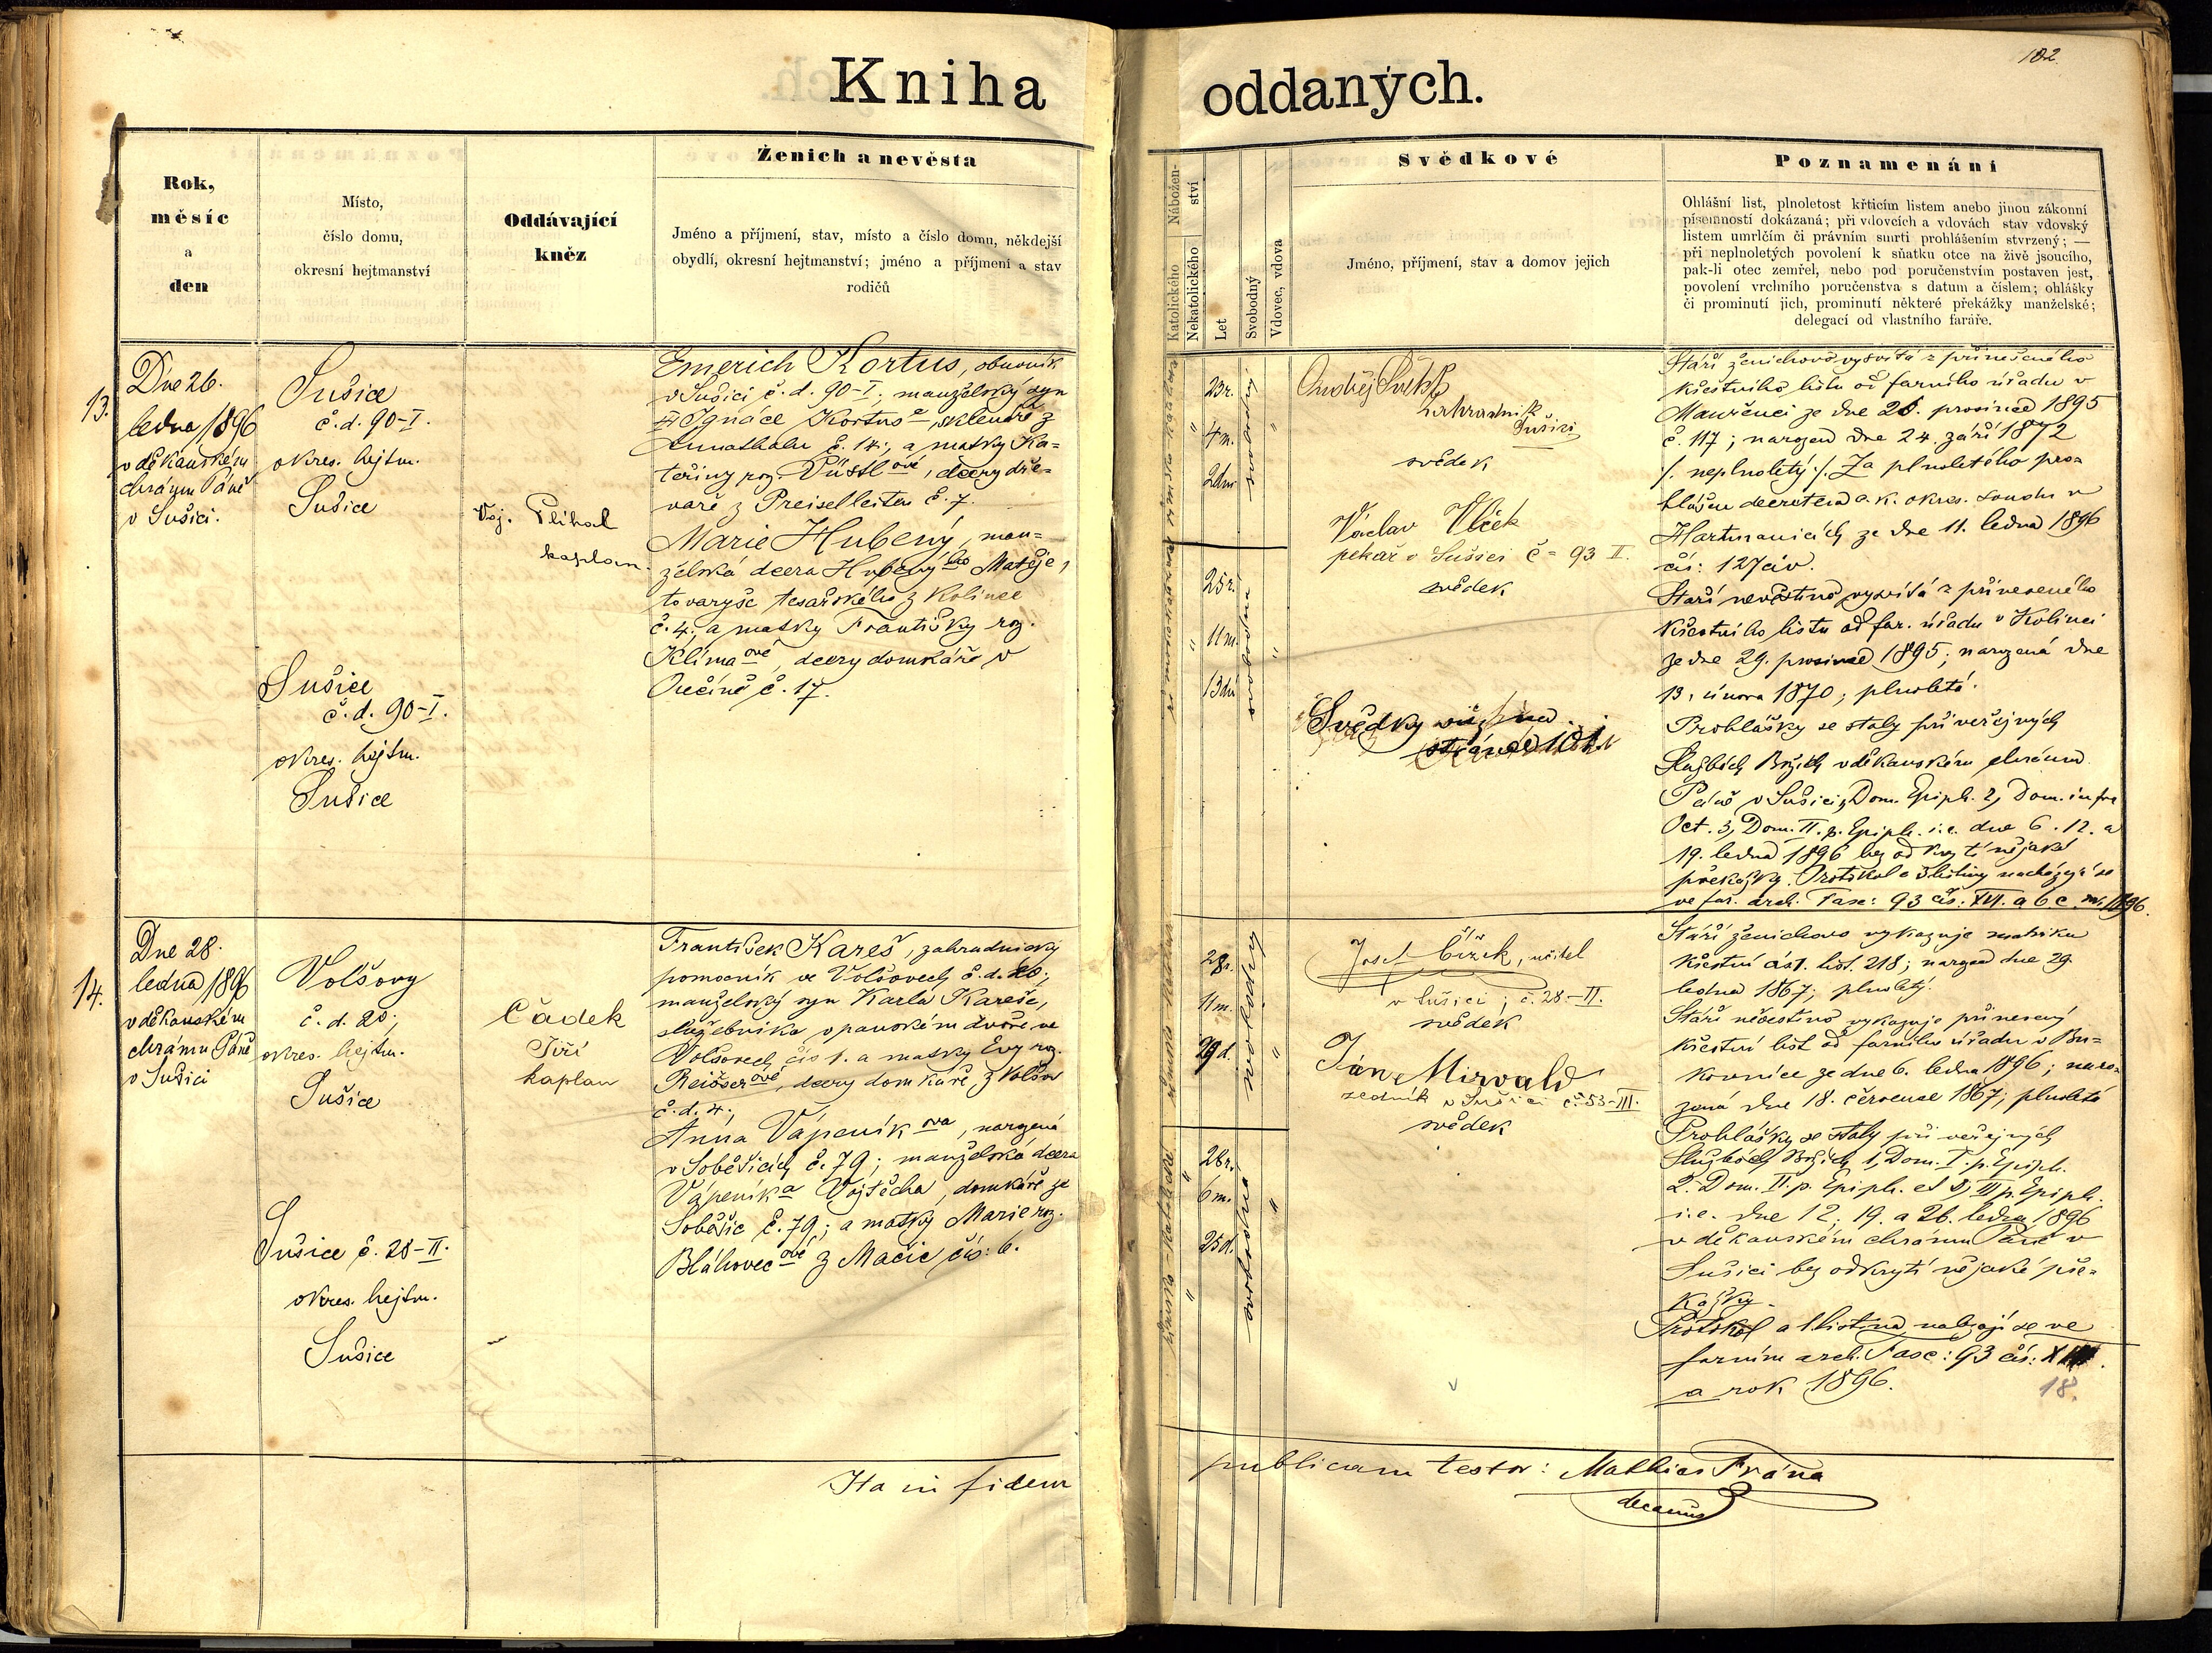 Kniha oddaných.
102.
Rok,
měsíc
a
den
Místo,
číslo domu,
okresní hejtmanství
Oddávající
kněz
Ženich a nevěsta
Jméno a příjmení, stav, místo a číslo domu, někdejší
obydlí, okresní hejtmanství; jméno a příjmení a stav
rodičů
Nábožen-
ství
Katolického
Nekatolického
Let
Svobodný
Vdovec, vdova
Svědkové
Jméno, příjmení, stav a domov jejich
Poznamenání
Ohlášní list, plnoletost křticím listem anebo jinou zákonní
písemností dokázaná; při vdovcích a vdovách stav vdovský
listem umrlčím či právním smrti prohlášením stvrzený; —
při neplnoletých povolení k sňatku otce na živě jsoucího,
pak-li otec zemřel, nebo pod poručenstvím postaven jest,
povolení vrchního poručenstva s datum a číslem; ohlášky
či prominutí jich, prominutí některé překážky manželské;
delegací od vlastního faráře.
13.
Dne 26.
ledna 1896
v děkanském
chrámu Páně
v Sušici.
Sušice
č. d. 90-I.
okres. hejtm.
Sušice
Sušice
č. d. 90-I.
okres. hejtm.
Sušice
Voj. Plihal
kaplan.
Emerich Kortus, obuvník
v Sušici č. d. 90-I; manželský syn
Ignáce Kortusa, skleňáře z
Annathalu č. 14; a matky Ka-
teřiny roz. ové, dcery dře-
vaře z Preiselleiten č. 7.
Marie Hubený, man-
želská dcera Hubenýho Matěje,
tovaryše tesařského z Kolince
č. 4; a matky Františky roz.
Klímaové, dcery domkáře v
č. 17.
katolické
23r.
4m.
2dni
svobodný
25r.
11m.
13dní
svobodna
Ondřej
Zahradník
Sušici
svědek
Václav Vlček
pekař v Sušici č= 93 II.
svědek
Svědky
stránce 101
Stáří ženichovo vysvítá z přineseného
křestního listu od farního úřadu v
Mouřenci ze dne 26. prosince 1895
č. 117; narozen dne 24. září 1872
/. neplnoletý ./. Za plnoletého pro-
hlášen decretem c. k. okres. soudu v
Hartmanicích ze dne 11. ledna 1896
čís: 127 civ.
Stáří nevěstino vysvítá z přineseného
křestního listu od far. úřadu v Kolinci
ze dne 29. prosince 1895; narozená dne
13. února 1870; plnoletá.
Prohlášky se staly při veřejných
Službách Božích v děkanském chrámu
Páně v Sušici, Dom. Epiph. 2, Dom. infra
Oct. 3, Dom. II. p. Epiph. i. e. dne 6. 12. a
19. ledna 1896 bez odkrytí nějaké
překážky. Protokol a 3 listiny nacházejí se
ve far. arch. Fasc: 93 čís: XVI. a b c 1896.
14.
Dne 28.
ledna 1896
v děkanském
chrámu Páně
v Sušici
Volšovy
č. d. 20;
okres. hejtm.
Sušice
Sušice č. 28-II.
okres. hejtm.
Sušice
Čadek
Jiří
kaplan
František Kareš, zahradnický
pomocník ve Volšovech č. d. 20;
manželský syn Karla Kareše,
služebníka v panském dvoře ve
Volšovech čís 1. a matky Evy roz.
ové, dcery domkáře z Volšov
č. d. 4;
Anna Vápeníkova, narozená
v Soběšicích č. 79; manželská dcera
Vápeníka Vojtěcha, domkáře ze
Soběšic č. 79; a matky Marie roz.
Bláhovecové z Mačic čís: 6.
28r.
11m.
29d.
svobodný
28r.
6m.
25d.
svobodna
Josef Čížek, učitel
v Sušici; č. 28.-II.
svědek
Ján Mirvald
zedník v Sušici č. 53-III.
svědek
Stáří ženichovo vykazuje matrika
křestní část. list. 218; narozen dne 29.
ledna 1867; plnoletý.
Stáří nevěstino vykazuje přinesený
křestní list od farního úřadu v Bu-
kovníce ze dne 6. ledna 1896; naro-
zená dne 18. července 1867; plnoletá
Prohlášky se staly při veřejných
Službách Božích 1, Dom. I. p. Epiph.
2. Dom. II. p. Epiph. et 3, III p. Epiph.
i. e. dne 12. 19. a 26. ledna 1896
v děkanském chrámu Páně v
Sušici bez odkrytí nějaké pře-
kážky.
Protokol a 1 listina nalezají se ve
farním arch. Fasc: 93 čís:
a rok 1896.
18.
Ita in fidem publicam testor: Mathias Frána
decanus